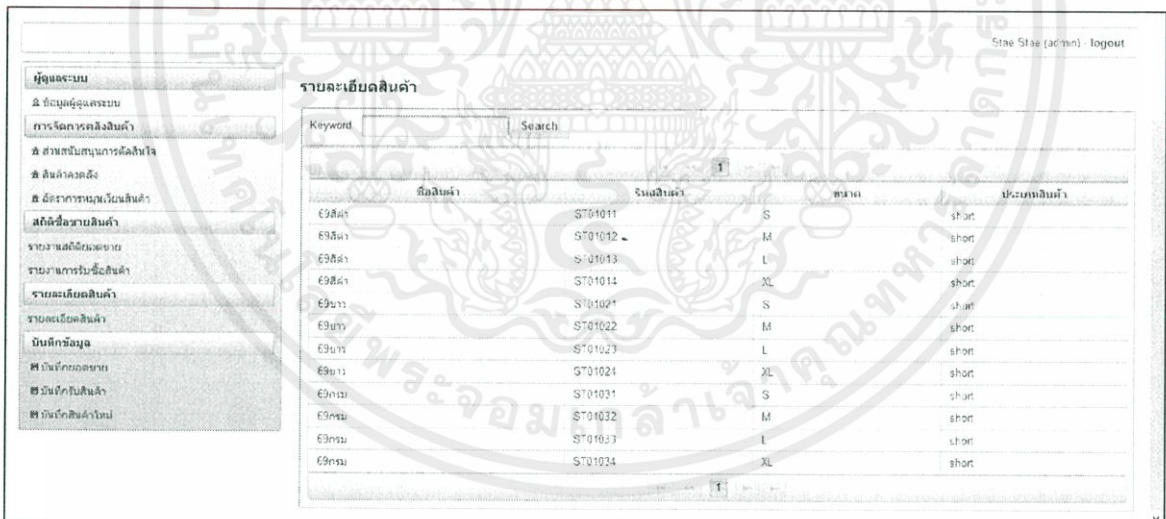 Stae Stae (admin) - logout
ผู้ดูแลระบบ
ข้อมูลผู้ดูแลระบบ
การจัดการคลังสินค้า
ส่วนสนับสนุนการตัดสินใจ
สินค้าคงคลัง
อัตราการหมุนเวียนสินค้า
สถิติซื้อขายสินค้า
รายงานสถิติยอดขาย
รายงานการรับซื้อสินค้า
รายละเอียดสินค้า
รายละเอียดสินค้า
บันทึกข้อมูล
บันทึกยอดขาย
บันทึกรับสินค้า
บันทึกสินค้าใหม่
รายละเอียดสินค้า
Keyword Search
1
ชื่อสินค้า รหัสสินค้า ขนาด ประเภทสินค้า
69สีดำ ST01011 S short
69สีดำ ST01012 M short
69สีดำ ST01013 L short
69สีดำ ST01014 XL short
69ขาว ST01021 S short
69ขาว ST01022 M short
69ขาว ST01023 L short
69ขาว ST01024 XL short
69กรม ST01031 S short
69กรม ST01032 M short
69กรม ST01033 L short
69กรม ST01034 XL short
1